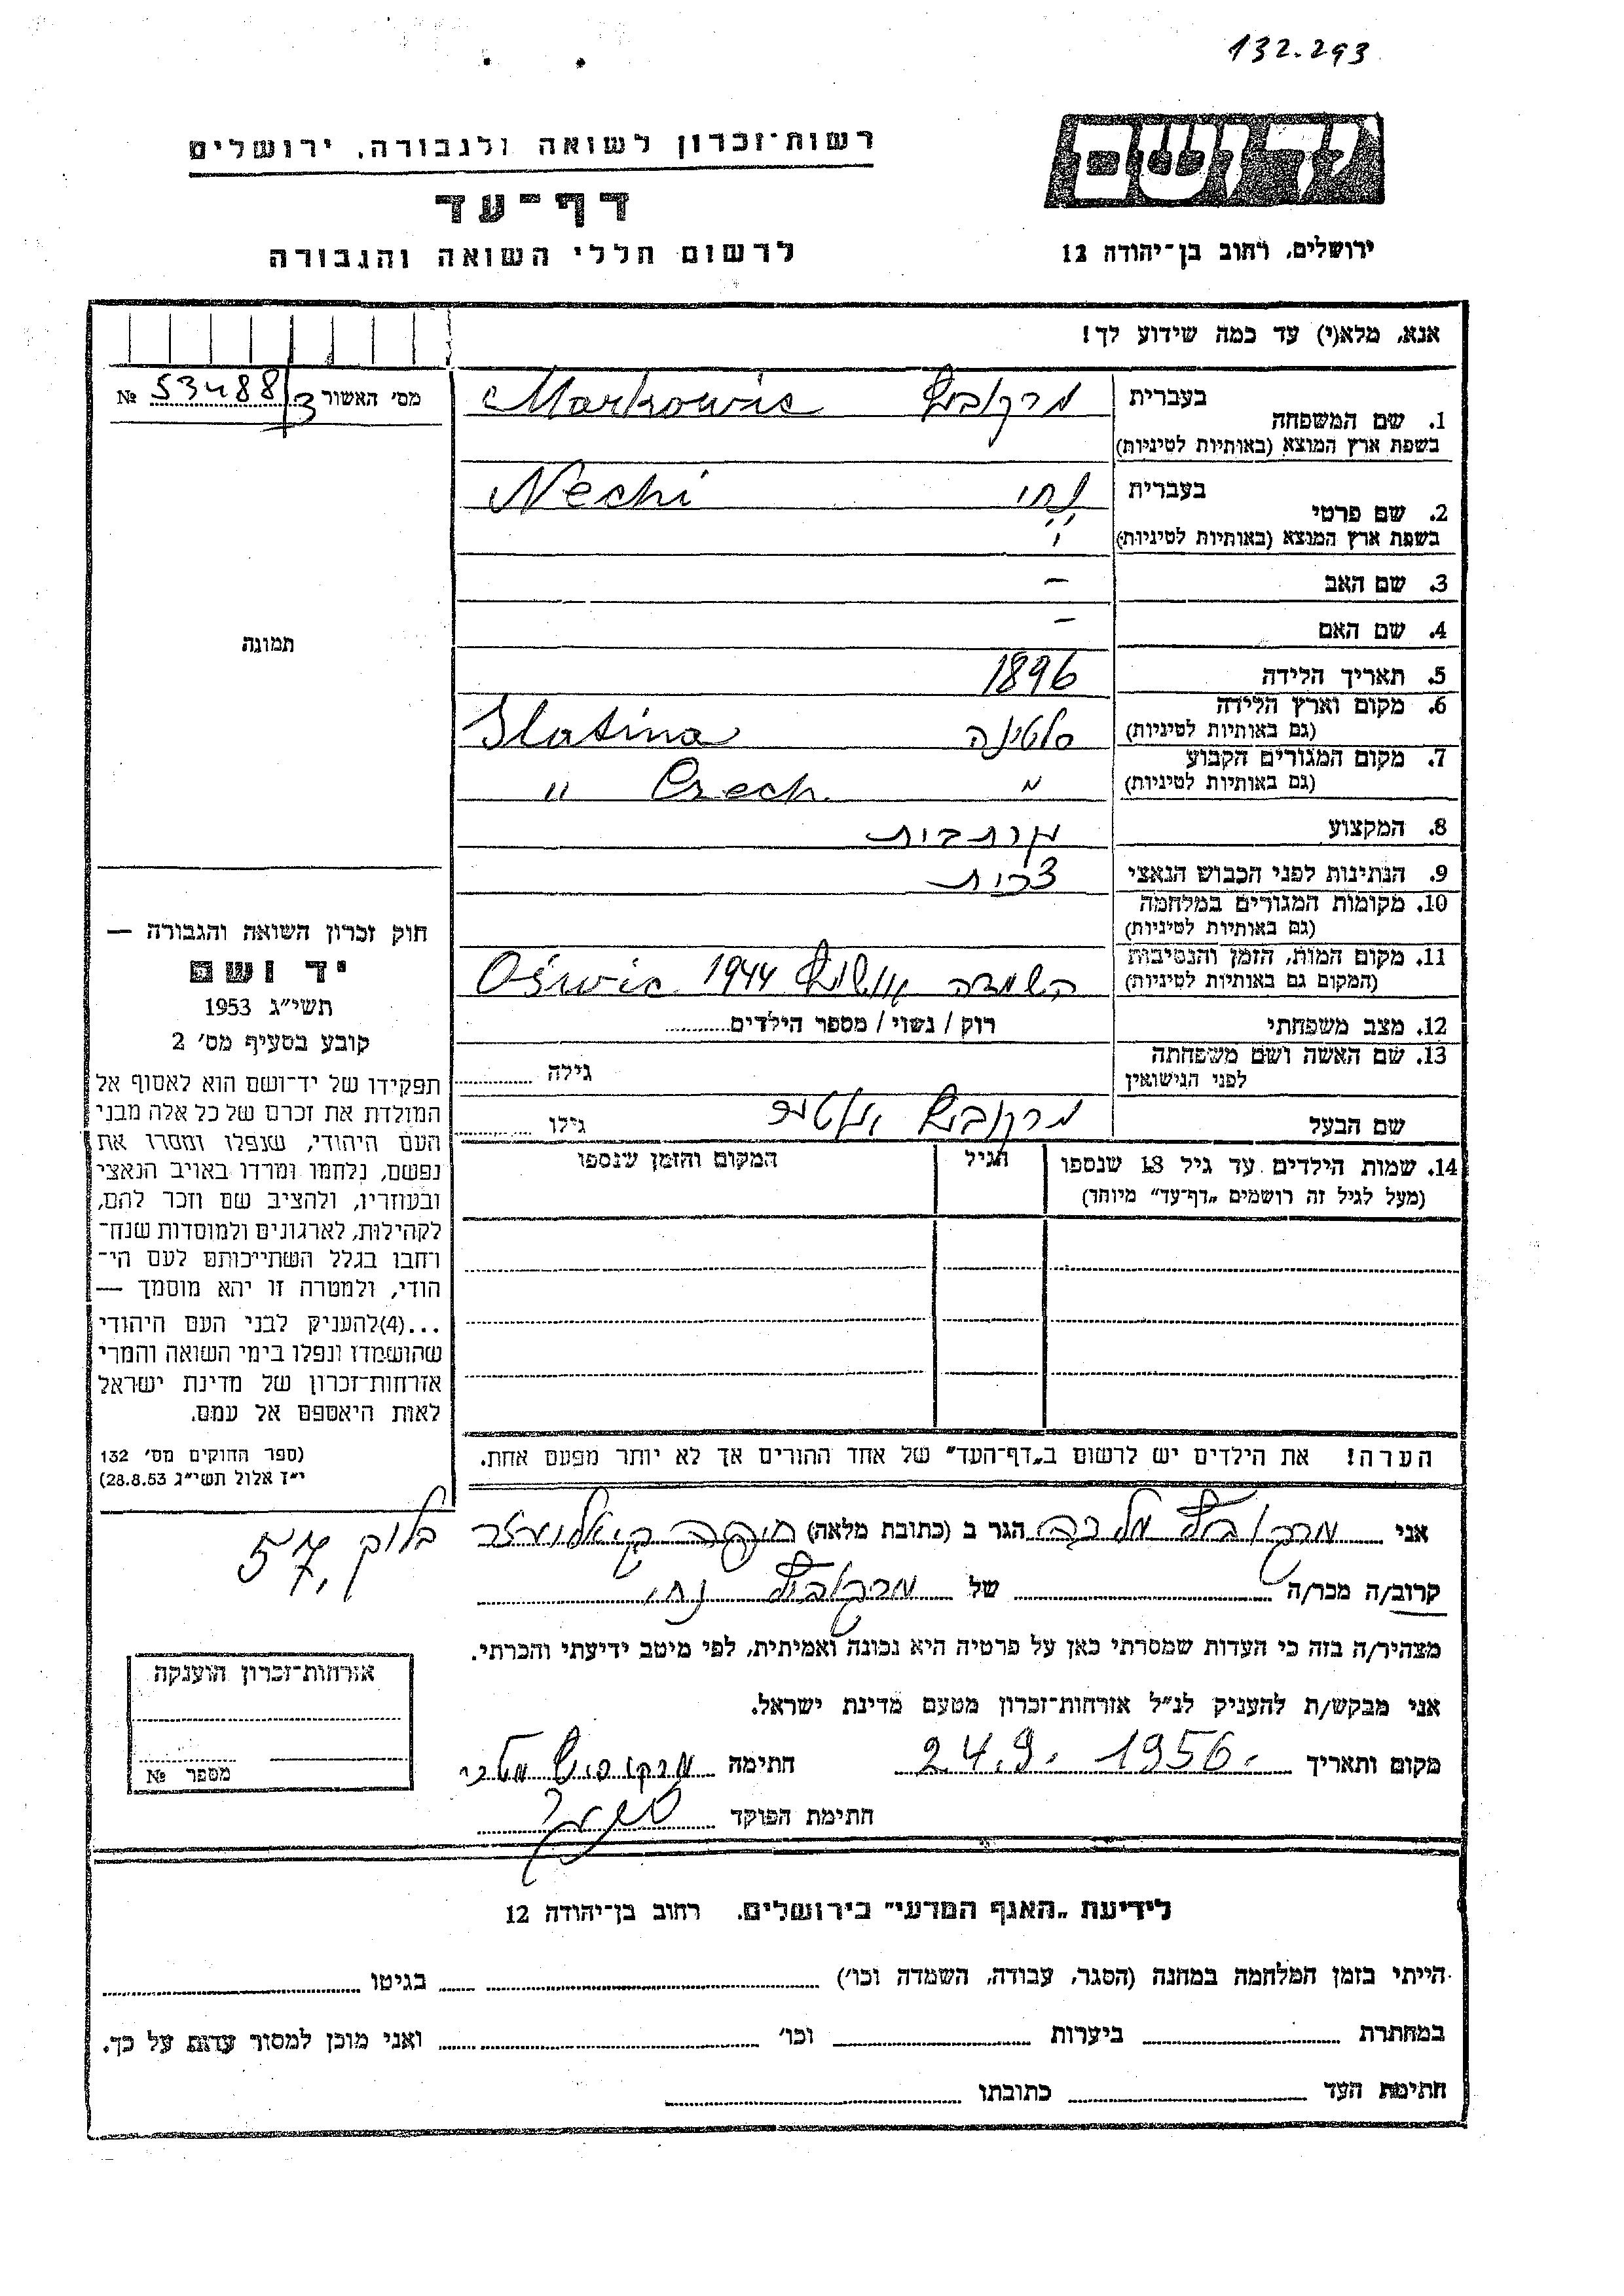 132.293
יד ושם
רשות־זכרון לשואה ולגבורה, ירושלים
דף־עד
לרשום חללי השואה והגבורה
ירושלים, רחוב בן־יהודה 12
אנא, מלא(י) עד כמה שידוע לך!
מס׳ האשור 53488/3 №
1. שם המשפחה
בעברית מרקוביץ Markowic
בשפת ארץ המוצא (באותיות לטיניות)
2. שם פרטי
בעברית נחי Nechi
בשפת ארץ המוצא (באותיות לטיניות)
3. שם האב –
4. שם האם –
5. תאריך הלידה 1896
6. מקום וארץ הלידה
(גם באותיות לטיניות) סלטינה Slatina
7. מקום המגורים הקבוע
(גם באותיות לטיניות) " Czech. "
8. המקצוע
9. הנתינות לפני הכבוש הנאצי צכית
10. מקומות המגורים במלחמה
(גם באותיות לטיניות)
11. מקום המות, הזמן והנסיבות
(המקום גם באותיות לטיניות) השמדה 1944 Oświc
12. מצב משפחתי רוק / נשוי / מספר הילדים
13. שם האשה ושם משפחתה
לפני הנישואין גילה
שם הבעל מרקוביץ גילו
14. שמות הילדים עד גיל 18 שנספו
(מעל לגיל זה רושמים „דף־עד" מיוחד)
הגיל
המקום והזמן שנספו
הערה! את הילדים יש לרשום ב„דף־העד" של אחד ההורים אך לא יותר מפעם אחת.
תמונה
חוק זכרון השואה והגבורה —
יד ושם
תשי״ג 1953
קובע בסעיף מס׳ 2
תפקידו של יד־ושם הוא לאסוף אל
המולדת את זכרם של כל אלה מבני
העם היהודי, שנפלו ומסרו את
נפשם, נלחמו ומרדו באויב הנאצי
ובעוזריו, ולהציב שם וזכר להם,
לקהילות, לארגונים ולמוסדות שנח־
רחבו בגלל השתייכותם לעם הי־
הודי, ולמטרה זו יהא מוסמך —
...(4)להעניק לבני העם היהודי
שהושמדו ונפלו בימי השואה והמרי
אזרחות־זכרון של מדינת ישראל
לאות היאספם אל עמם.
(ספר החוקים מס׳ 132
י״ז אלול תשי״ג 28.8.53)
אני מרקוביץ מלכה הגר ב (כתובת מלאה) בלוק 57,
קרוב/ה מכר/ה של מרקוביץ נחי
מצהיר/ה בזה כי העדות שמסרתי כאן על פרטיה היא נכונה ואמיתית, לפי מיטב ידיעתי והכרתי.
אני מבקש/ת להעניק לנ״ל אזרחות־זכרון מטעם מדינת ישראל.
מקום ותאריך 24.9.1956. חתימה
חתימת הפוקד
אזרחות־זכרון הוענקה
מספר №
לידיעת „האגף המדעי" בירושלים, רחוב בן־יהודה 12
הייתי בזמן המלחמה במחנה (הסגר, עבודה, השמדה וכו׳) בגיטו
במחתרת ביערות וכו׳ ואני מוכן למסור עדות על כך.
חתימת העד כתובתו